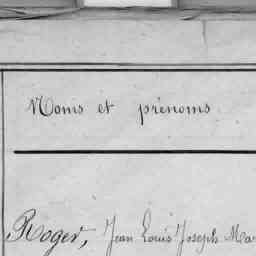 Noms et prénoms
Roger, Jean Louis Joseph Ma